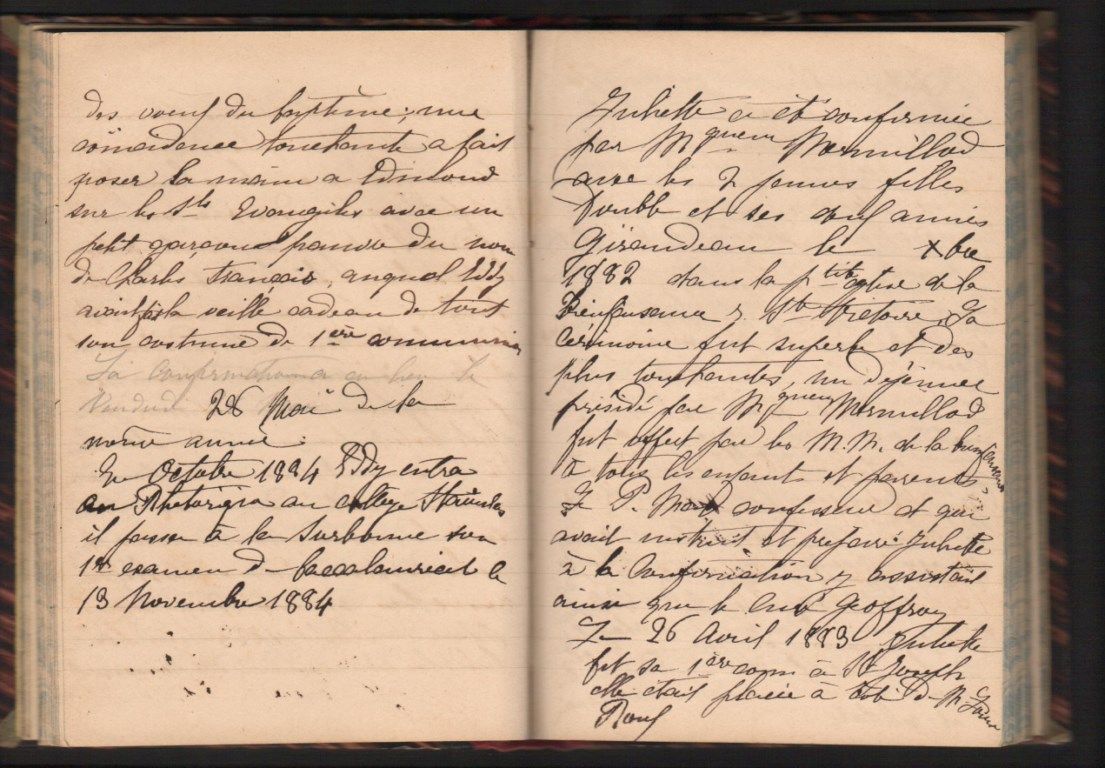 des vœux du baptême; une
coïncidence touchante a fait
poser la main à Edmond
sur les Sts Evangiles avec un
petit garçon pauvre du nom
de Charles François, auquel Eddy
avait fait la veille cadeau de tout
son costume de 1ère communion
La Confirmation a eu lieu le
Vendredi 26 Mai de la
même année.
En Octobre 1884 Eddy entra
en Rhétorique au collège Stanislas
il passa à la Sorbonne son
1er examen de baccalauréat le
13 Novembre 1884
Juliette a été confirmée
par Mgneur Mermillod
avec les 2 jeunes filles
Double et ses deux amies
Girandeau le Xbre
1882 dans la ptite église de la
Bienfaisance r. St La
cérémonie fut superbe et des
plus touchantes, un déjeuner
présidé par Mgneur Mermillod
fut offert par les M.M. de la
à tous les enfants et parents,
Le P. confesseur et qui
avait instruit et préparé Juliette
à la Confirmation y assistait
ainsi que le Curé Geoffroy
Le 26 Avril 1883 Juliette
fit sa 1ère com à St Joseph
elle était placée à côté de M.
Roux